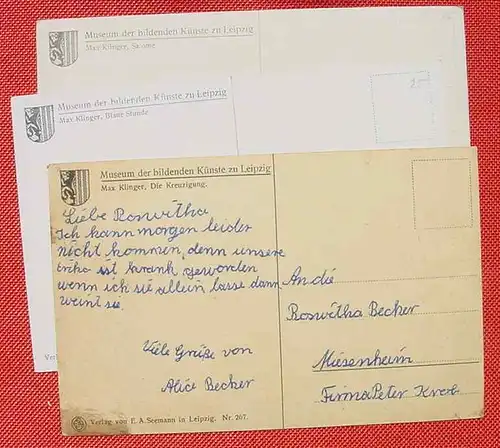 Museum der bildenden Künste zu Leipzig
Max Klinger, Salome
Museum der bildenden Künste zu Leipzig
Max Klinger, Blaue Stunde
Museum der bildenden Künste zu Leipzig
Max Klinger, Die Kreuzigung.
Liebe Roswitha
Ich kann morgen leider
nicht kommen, denn unsere
ist krank geworden
wenn ich sie allein lasse dann
weint sie.
Viele Grüße von
Alice Becker
An die
Roswitha Becker
Miesenheim
Firma Peter
Verlag von E. A. Seemann in Leipzig. Nr. 267.
Ver